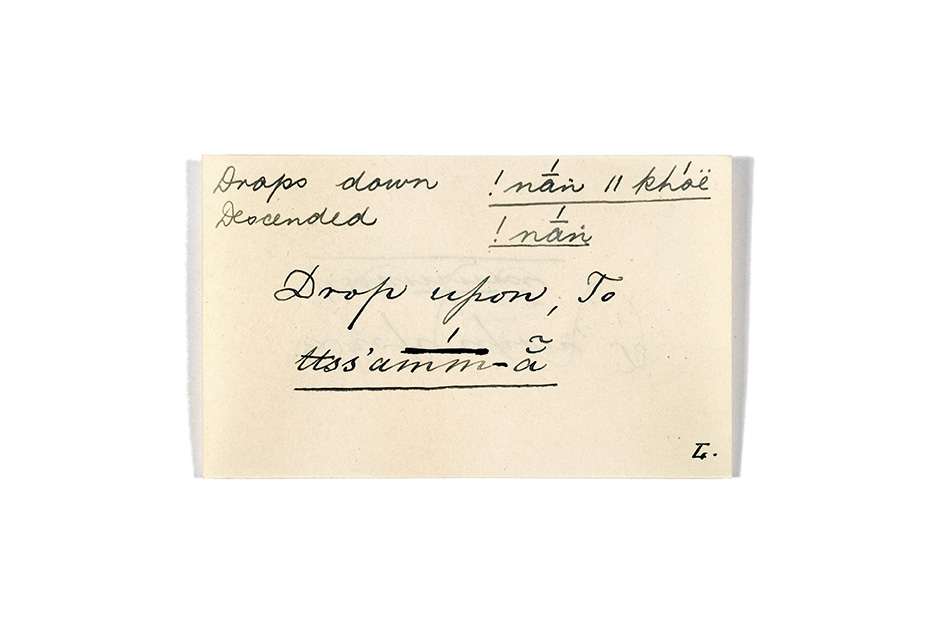 Drops down !nā́n̈ ǁ khóë
Descended !nā́n̈
Drop upon, To
ttss'am̄́m̄-ã̆
L.